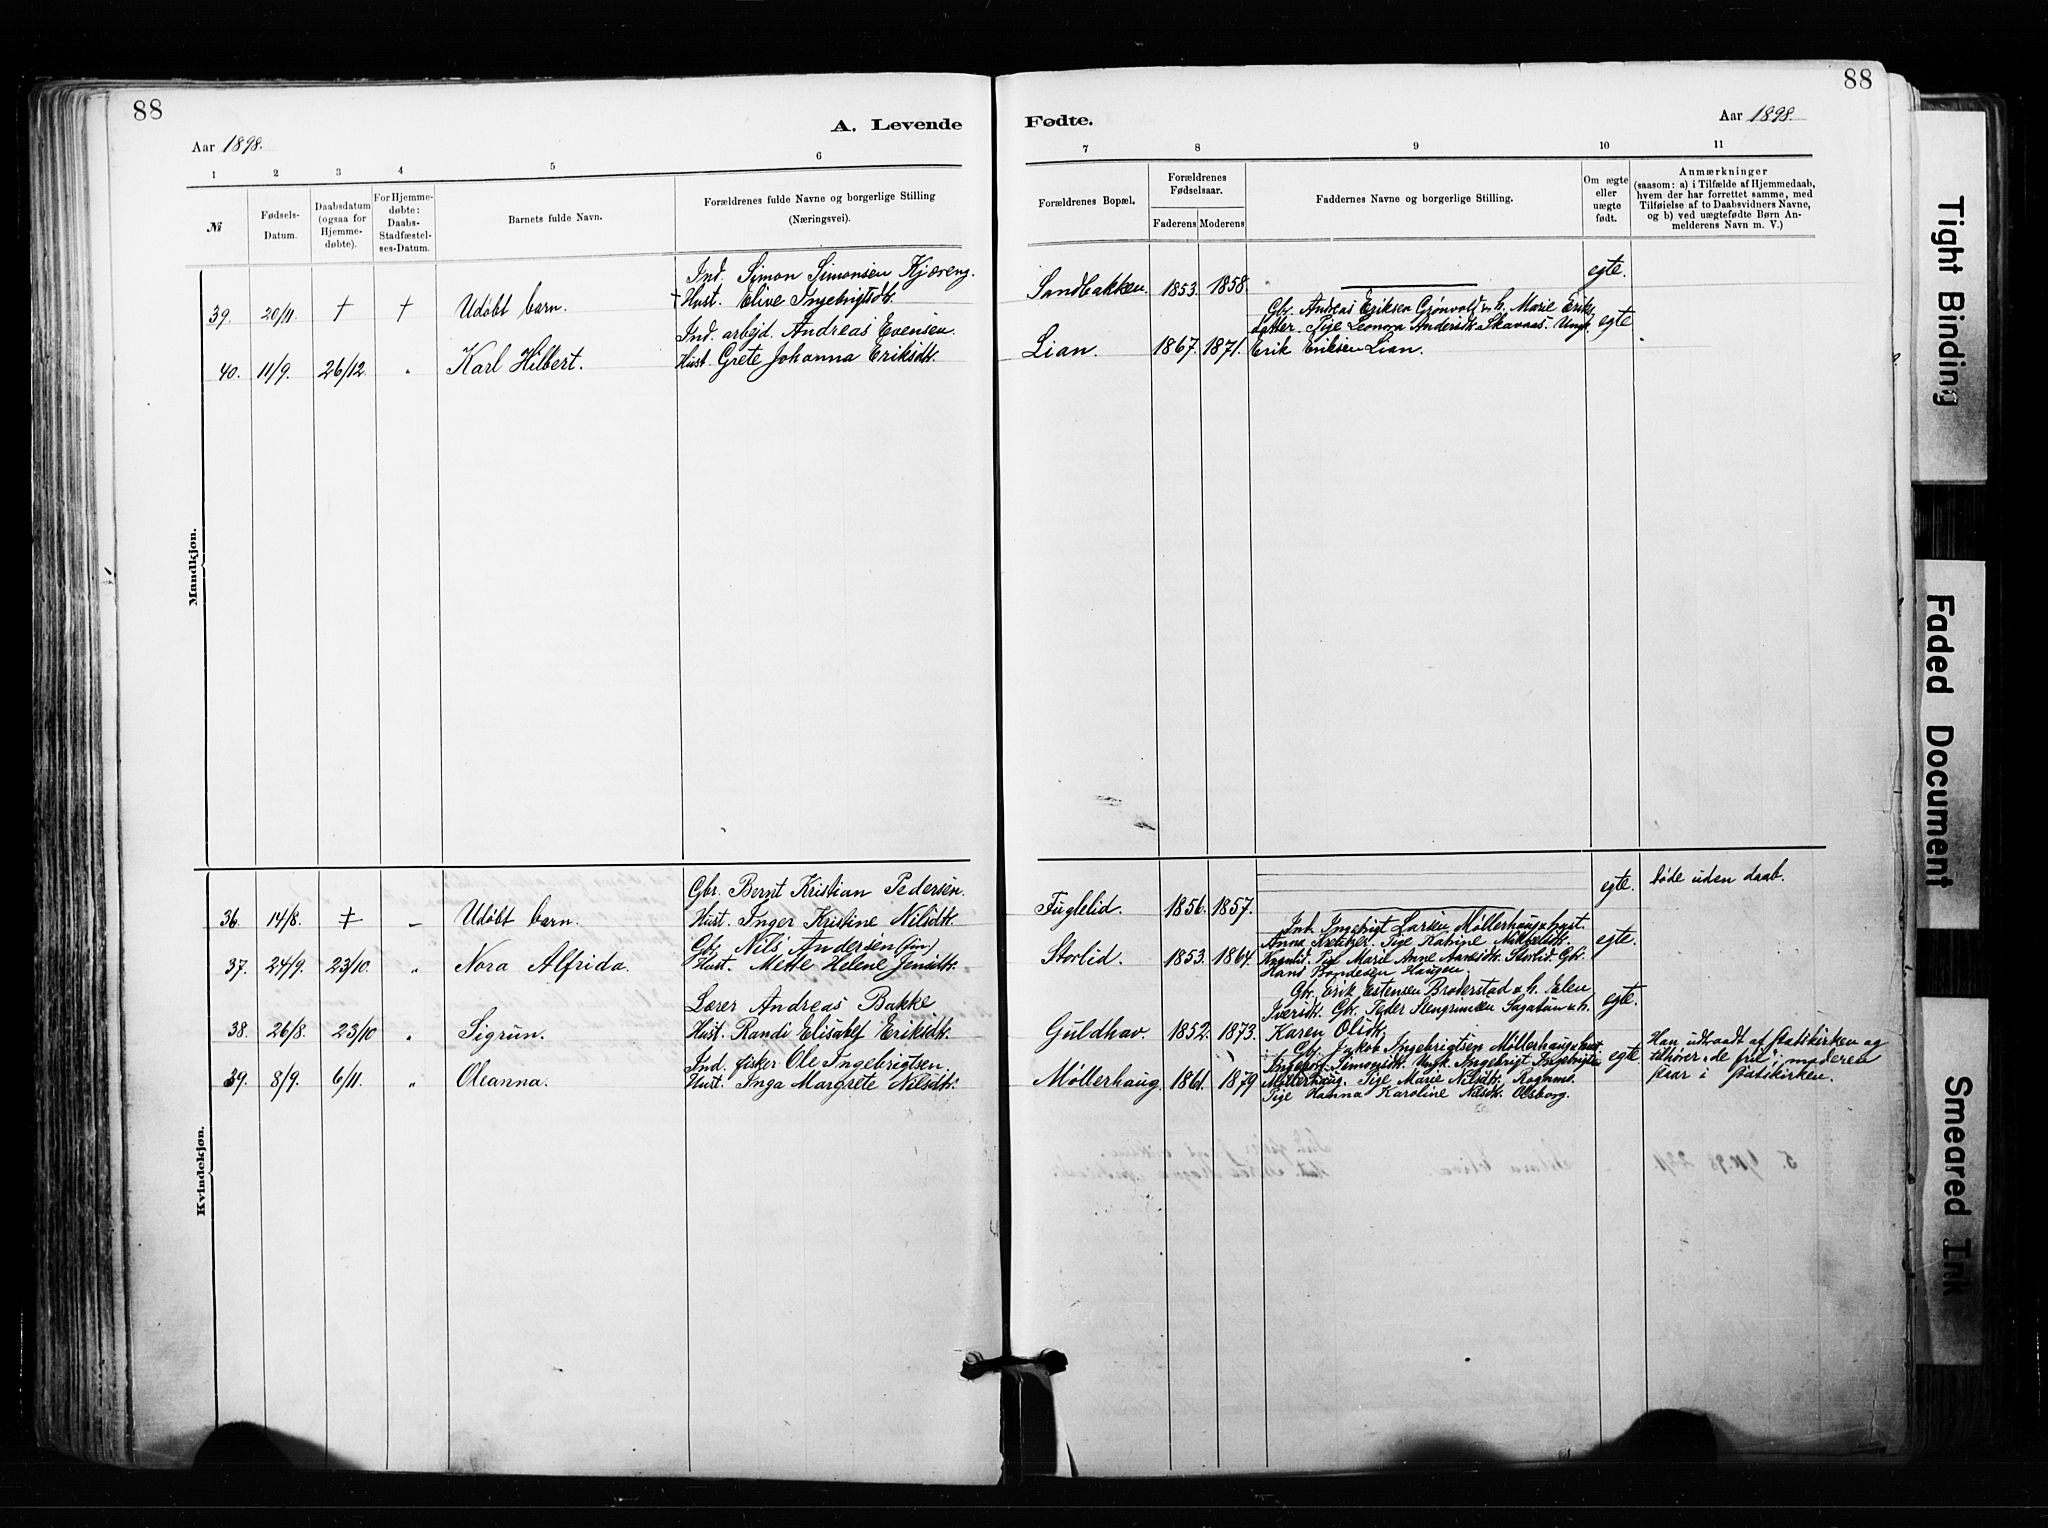 88
88
A. Levende
Fødte.
Aar 1898.
Aar 1898.
1 2 3 4 5 6
7 8 9 10 11
№
Fødsels-
Datum.
Daabsdatum
(ogsaa for
Hjemme-
døbte).
For Hjemme-
døbte:
Daabs-
Stadfæstel-
ses-Datum.
Barnets fulde Navn.
Forældrenes fulde Navne og borgerlige Stilling
(Næringsvei).
Forældrenes Bopæl.
Forældrenes
Fødselsaar.
Faderens Moderens
Faddernes Navne og borgerlige Stilling.
Om ægte
eller
uægte
født.
Anmærkninger
(saasom: a) i Tilfælde af Hjemmedaab,
hvem der har forrettet samme, med
Tilføielse af to Daabsvidners Navne,
og b) ved uægtefødte Børn An-
melderens Navn m. V.)
Mandkjøn.
Ind. Simon Simonsen Kjæreng.
39. 20/11. † † Udøbt barn. Hust. Elive Ingebrigtsdt.
Sandbakken. 1853. 1858. egte.
Ind. arbejd. Andreas Evensen.
40. 11/9. 26/12. " Karl Hilbert. Hust. Grete Johanna Eriksdt.
Lian. 1867. 1871.
Gbr. Andreas Eriksen Grønvold o. h. Marie Eriks-
datter. Pige Leonora Andersdt. Skavaas. Ungk.
Erik Eriksen Lian.
egte
Kvindekjøn.
Gbr. Bernt Kristian Pedersen.
36. 14/8. † – Udøbt barn. Hust. Inger Kristine Nilsdt.
Fuglelid. 1856. 1857. egte. døde uden daab.
Gbr. Nils Andersen (jun)
37. 24/9. 23/10. " Nora Alfrida. Hust. Mette Helene Jensdt.
Storlid. 1853. 1864.
Ind. Ingebrigt Larsen Møllerhaug o. hust.
Anna Pige Katrine Mikkelsdt.
Pige Marie Anne Aanesdt. Storlid. Gbr.
Hans Haugen.
egte.
Lærer Andreas Bakke
38. 26/8. 23/10 " Sigrun. Hust. Randi Elisabet Eriksdt.
Guldhav. 1852. 1873.
Gbr. Erik Estensen Brøderstad o. h. Elen
Iversdt. Gbr. Peder Stengrimsen Sagatun o. h.
Karen Olsdt.
egte.
Ind. fisker Ole Ingebrigtsen.
39. 8/9. 6/11. " Oleanna. Hust. Inga Margrete Nilsdt.
Møllerhaug. 1861. 1879
Gbr. Jakob Ingebrigtsen Møllerhaug o. hust.
Ingeborg Simonsdt. Ungk. Ingebrigt Ingebrigtsen
Møllerhaug. Pige Marie Nilsdt. Rognmo.
Pige Hanna Karoline Nilsdt. Olsborg.
egte
Han udtraadt af statskirken og
tilhører „de frie"; moderen
staar i statskirken.
Tight Binding
Faded Document
Smeared Ink